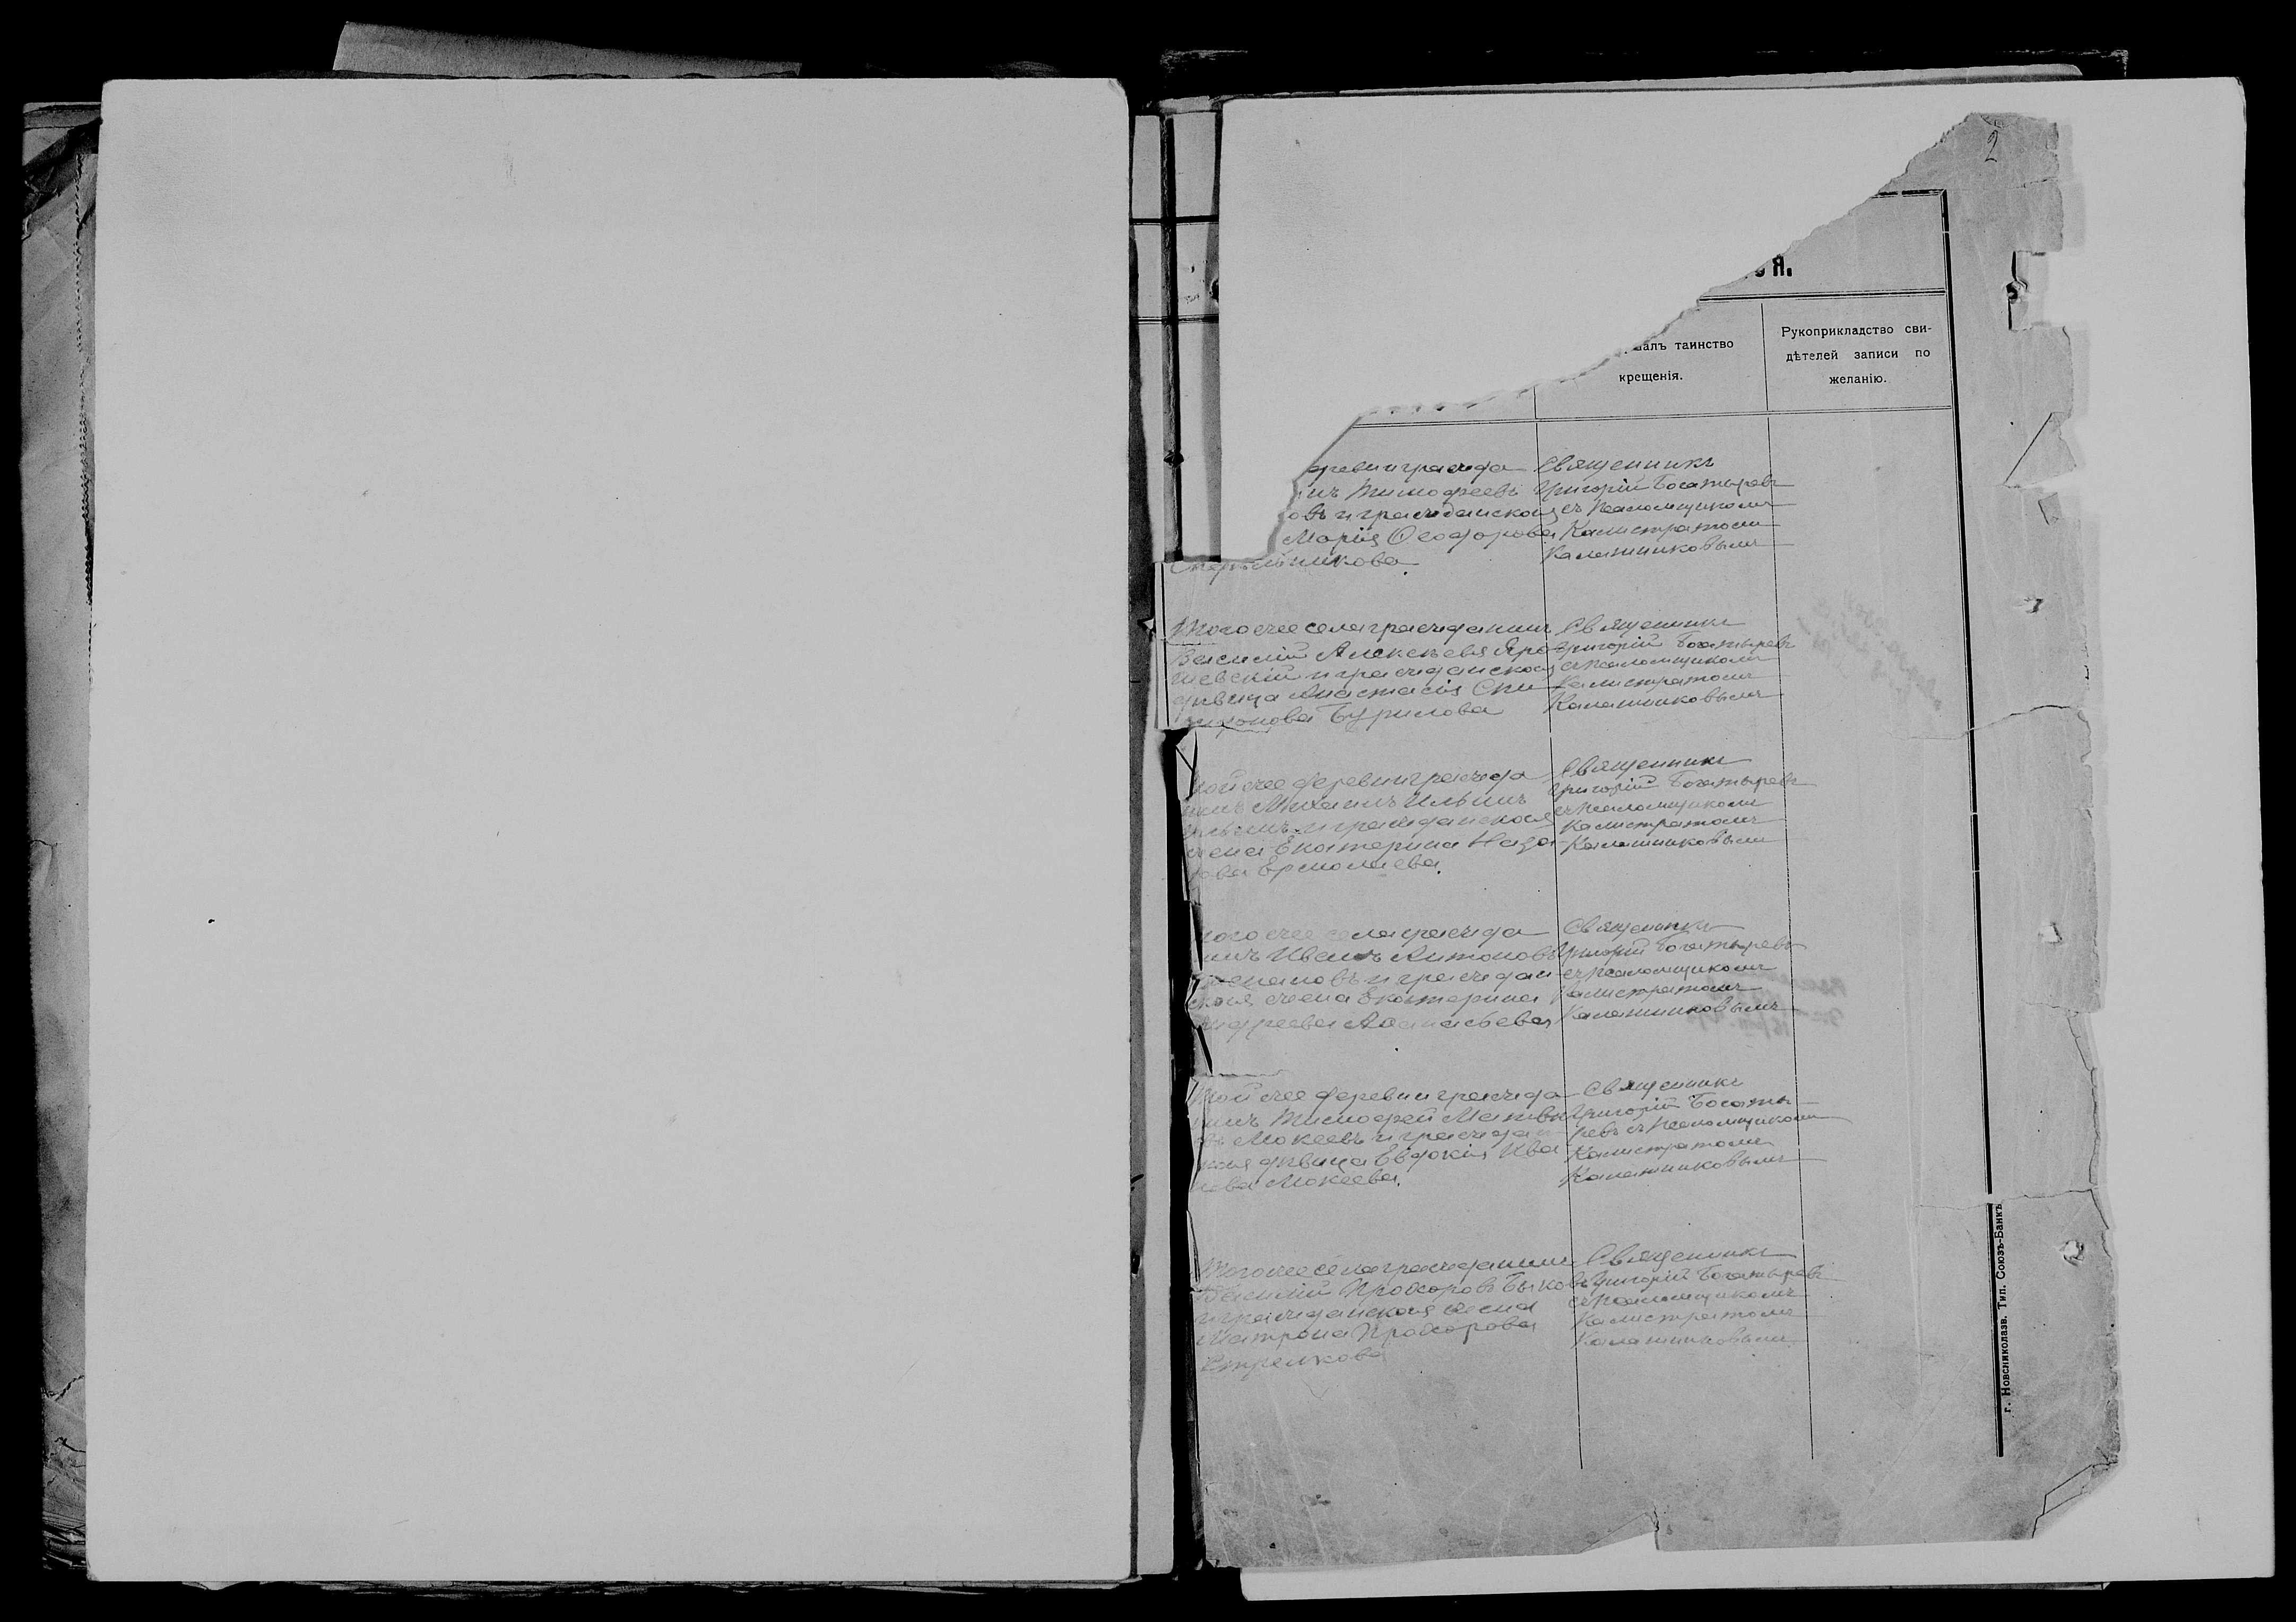 2
я.
алъ таинство
крещенія.
Рукоприкладство сви-
дѣтелей записи по
желанію.
деревни гражда
инъ Тимофеевъ
овъ и гражданская
Марія Феодорова
Священникъ
Григорій Богатыревъ
съ псаломщикомъ
Калистратомъ
Калашниковымъ
Того же села гражданинъ
Василій Алексѣевъ Яро
шевскій и гражданская
дѣвица Анастасія Спи
ридонова Бурилова
Священникъ
Григорій Богатыревъ
съ псаломщикомъ
Калистратомъ
Калашниковымъ
Той же деревни гражда
нинъ Михаилъ Ильинъ
и гражданская
жена Екатерина Наза
рова Ермолаева.
Священникъ
Григорій Богатыревъ
съ псаломщикомъ
Калистратомъ
Калашниковымъ
Того же села гражда
нинъ Иванъ Антоновъ
и граждан
ская жена Екатерина
Андреева Афанасьева
Священникъ
Григорій Богатыревъ
съ псаломщикомъ
Калистратомъ
Калашниковымъ
Той же деревни гражда
нинъ Тимофей Матвѣе
въ Мокеевъ и граждан
ская дѣвица Евдокія Ива
нова Мокеева.
Священникъ
Григорій Богаты
ревъ съ псаломщикомъ
Калистратомъ
Калашниковымъ
Того же села гражданинъ
Василій Прохоровъ Быковъ
и гражданская жена
Матрона Прохорова
Стрелкова
Священникъ
Григорій Богатыревъ
съ псаломщикомъ
Калистратомъ
Калашниковымъ
г. Новониколаев. Тип. Союзъ-Банкъ